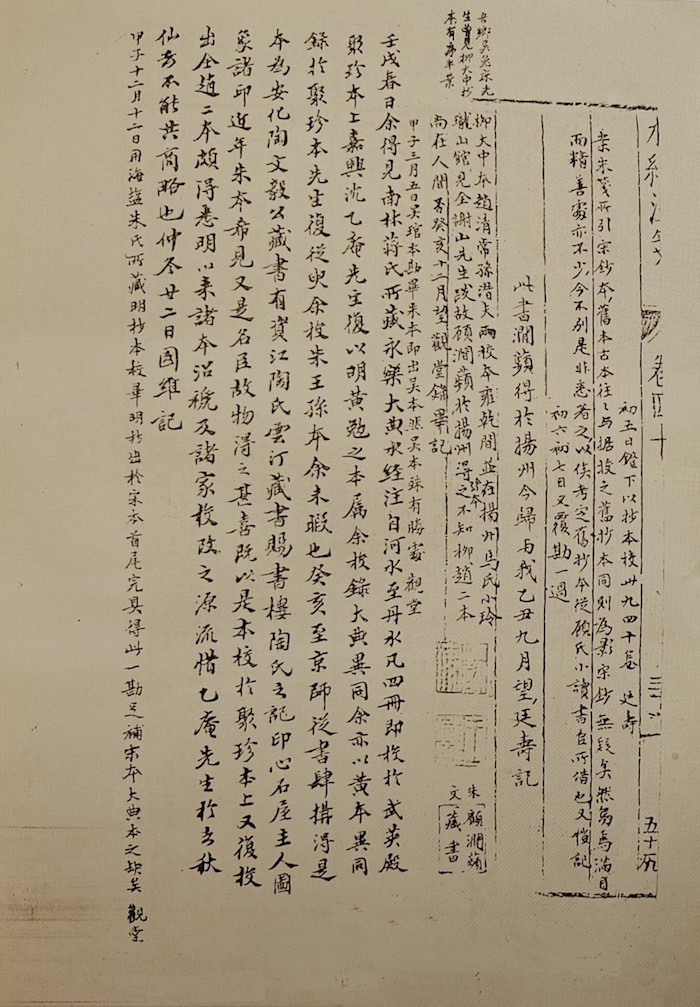 水經注箋 卷四十 三 五十九
初五日鐙下以抄本校卅九四十卷 廷壽
朱箋所引宋鈔本舊本古本往〻与據校之舊抄本同則為影宋鈔無疑矣然烏焉滿目
而精善處亦不少今不別是非悉著之以俟考定舊抄本從顧氏小讀書自所借也又愷記
初六初七日又覆勘一過
此書澗薲得於揚州今歸与我乙丑九月望廷壽記
吾鄉吳兔牀先
生曾見柳大中抄
本有序半葉
柳大中本趙清常孫潛夫兩校本雍乾間並在揚州馬氏小玲
瓏山館見全謝山先生跋故顧澗薲於揚州得之孫本不知柳趙二本
尚在人間否癸亥十二月望觀堂錄畢記
朱文
顧澗薲藏書
甲子三月五日吳琯本勘畢朱本即出吳本然吳本殊有勝處 觀堂
壬戌春日余得見南林蔣氏所藏永樂大典水經注自河水至丹水凡四冊即校於武英殿
聚珍本上嘉興沈乙庵先生復以明黃勉之本屬余校錄大典異同余亦以黃本異同
錄於聚珍本先生復從臾余校朱王孫本余未暇也癸亥至京師從書肆搆得是
本為安化陶文毅公藏書有資江陶氏雲汀藏書賜書樓陶氏之記印心石屋主人圖
篆諸印近年朱本希見又是名臣故物得之甚喜既以是本校於聚珍本上又復校
出全趙二本頗得悉明以來諸本沿稅及諸家校改之源流惜乙庵先生於去秋
仙去不能共商略也仲冬廿二日國維記
甲子十二月十二日用海鹽朱氏所藏明抄本校畢明抄出於宋本首尾完具得此一勘足補宋本大典本之缺矣 觀堂